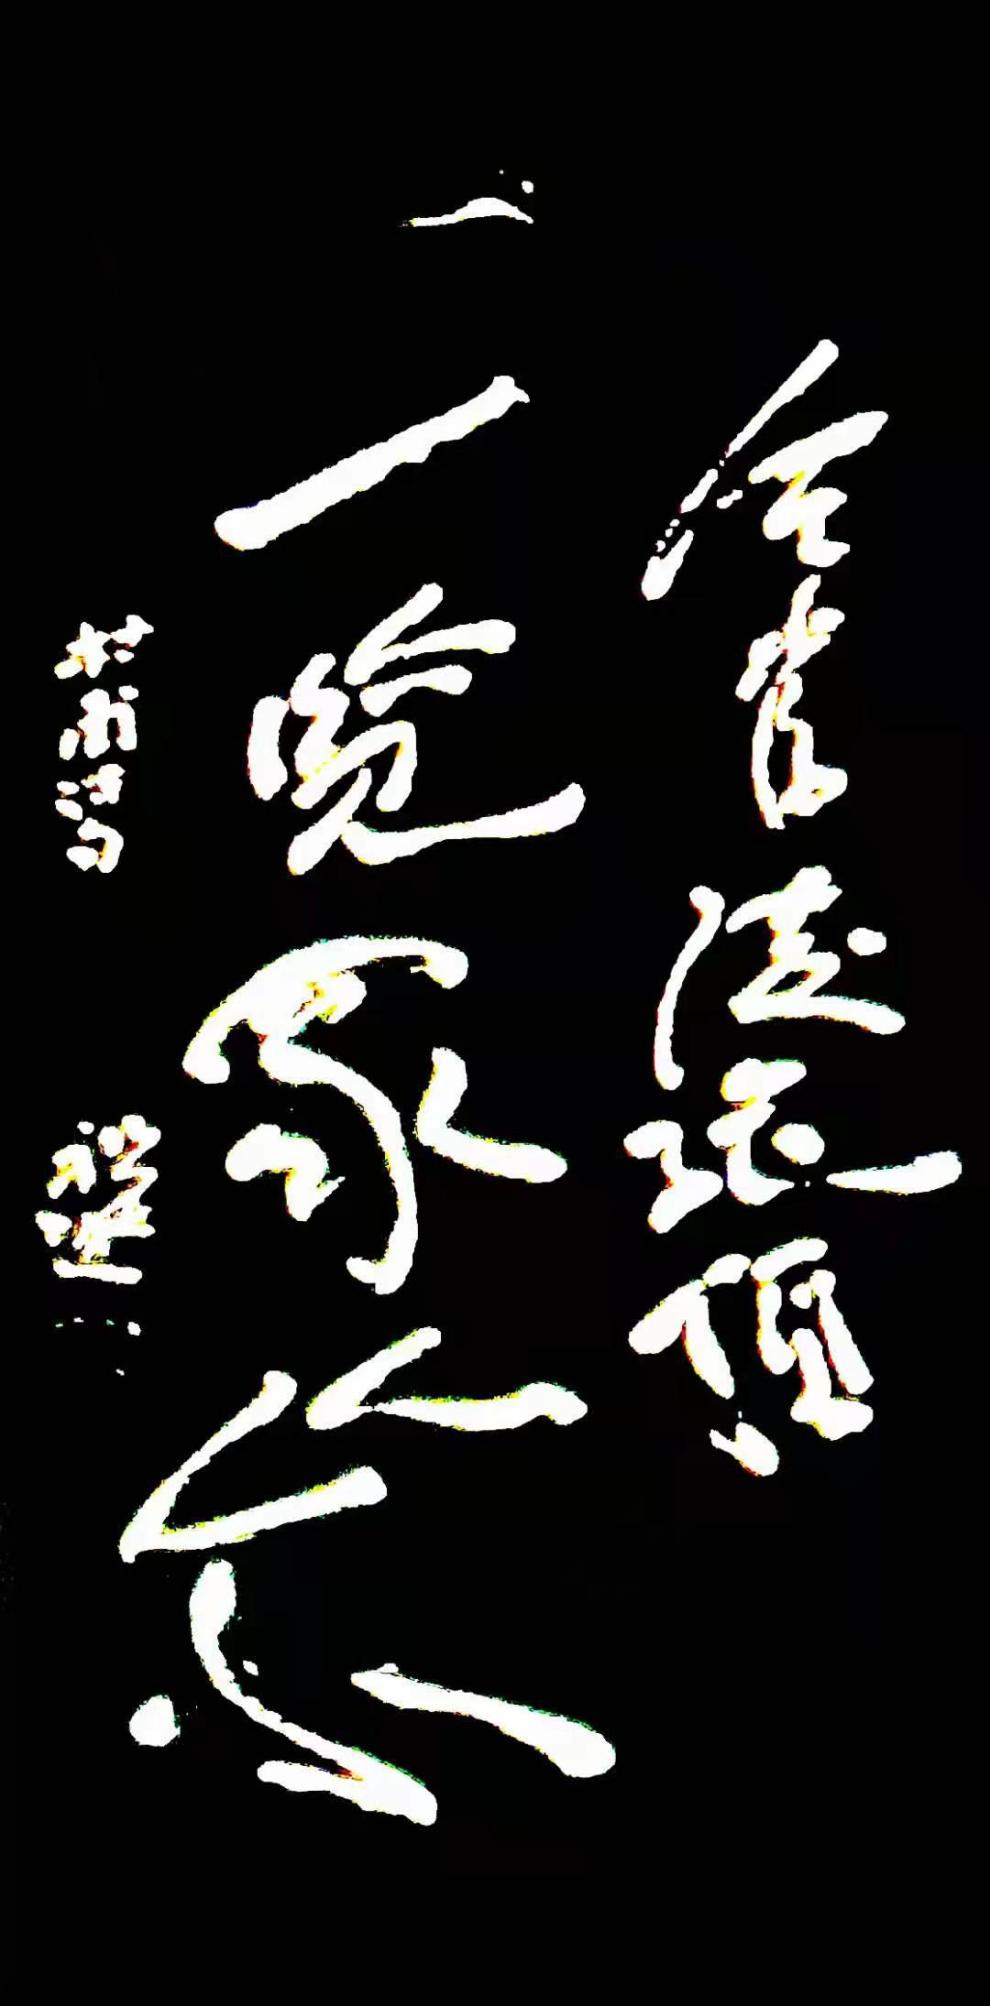 会当凌绝顶
一览众山小
杜甫